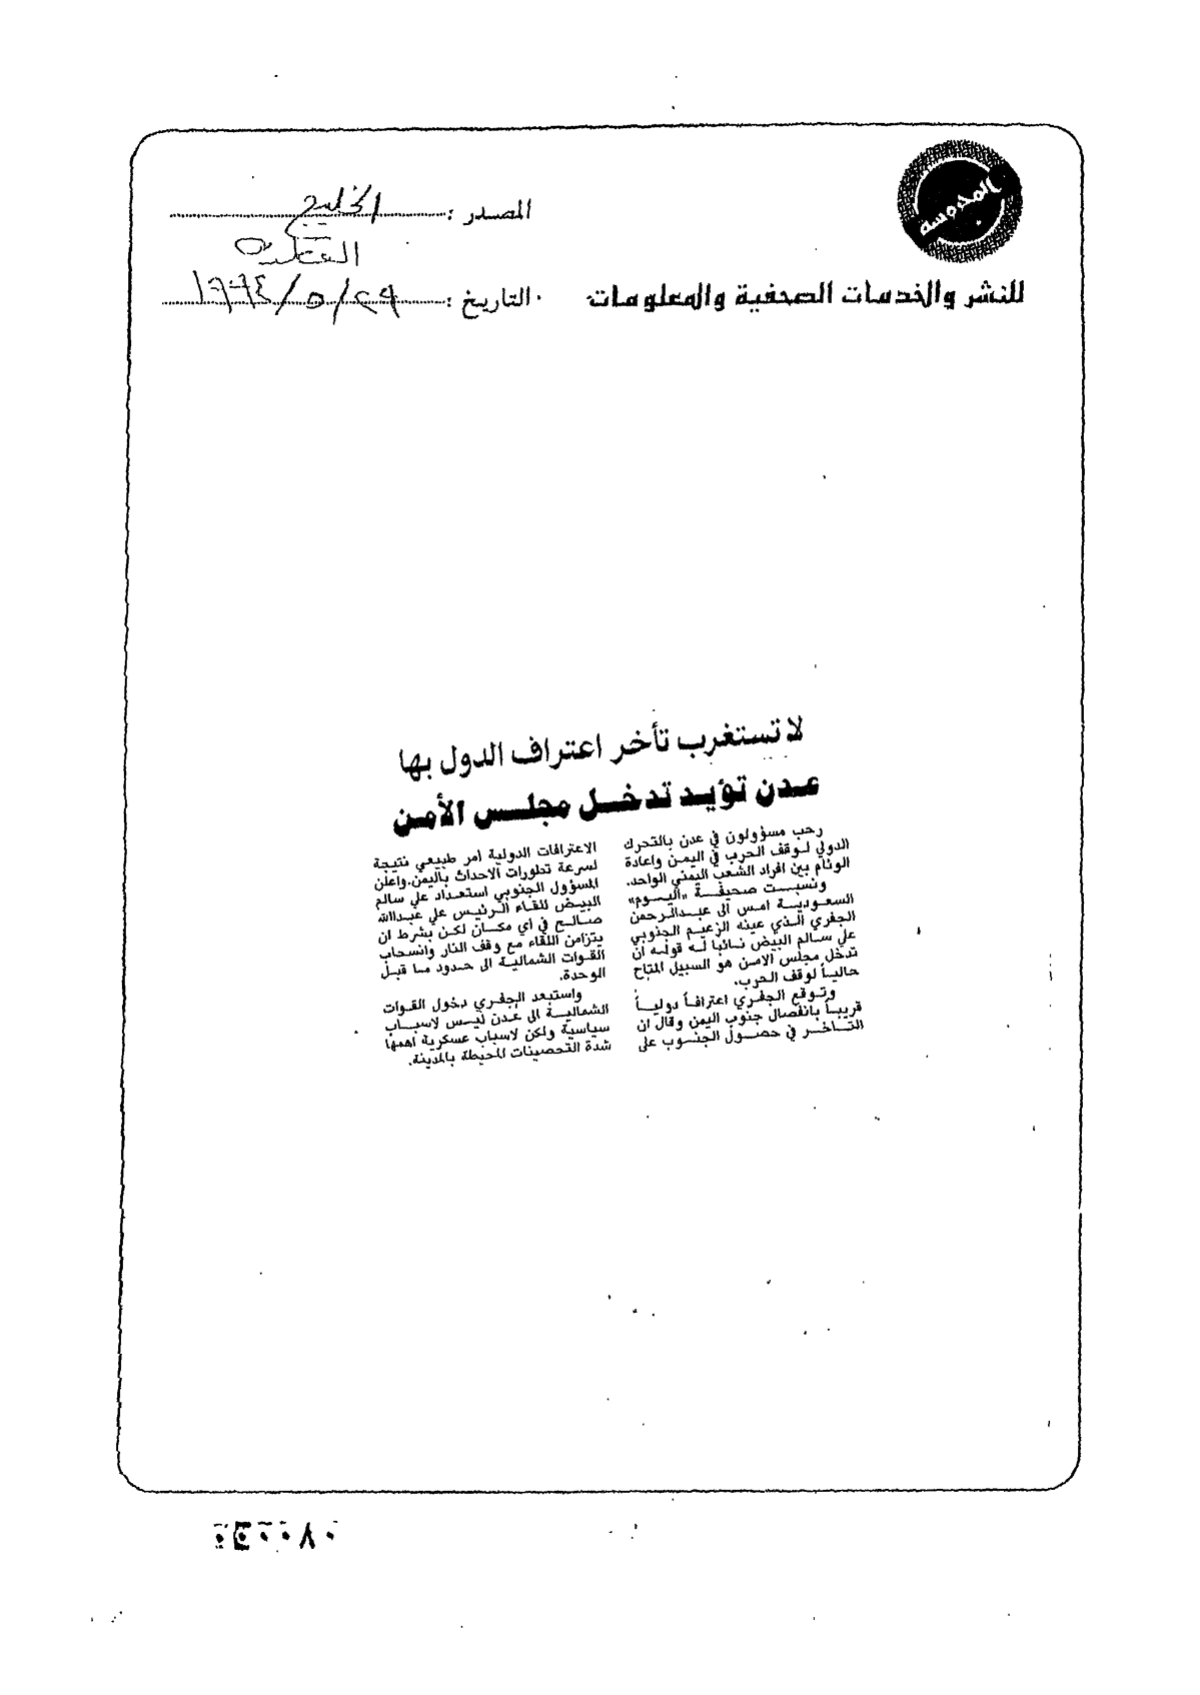 المحروسة
للنشر والخدمات الصحفية والمعلومات
المصدر : الخليج
التاريخ : ٢٩/٥/١٩٩٤
لا تستغرب تأخر اعتراف الدول بها
عدن تؤيد تدخل مجلس الأمن
رحب مسؤولون في عدن بالتحرك
الدولي لوقف الحرب في اليمن واعادة
الوئام بين افراد الشعب اليمني الواحد.
ونسبت صحيفة «اليوم»
السعودية امس الى عبدالرحمن
الجفري الذي عينه الزعيم الجنوبي
علي سالم البيض نائبا له قوله ان
تدخل مجلس الامن هو السبيل المتاح
حالياً لوقف الحرب.
وتوقع الجفري اعترافاً دولياً
قريباً بانفصال جنوب اليمن وقال ان
التاخر في حصول الجنوب على
الاعترافات الدولية امر طبيعي نتيجة
لسرعة تطورات الاحداث باليمن.واعلن
المسؤول الجنوبي استعداد علي سالم
البيض للقاء الرئيس علي عبدالله
صالح في اي مكان لكن بشرط ان
يتزامن اللقاء مع وقف النار وانسحاب
القوات الشمالية الى حدود ما قبل
الوحدة.
واستبعد الجفري دخول القوات
الشمالية الى عدن ليس لاسباب
سياسية ولكن لاسباب عسكرية اهمها
شدة التحصينات المحيطة بالمدينة.